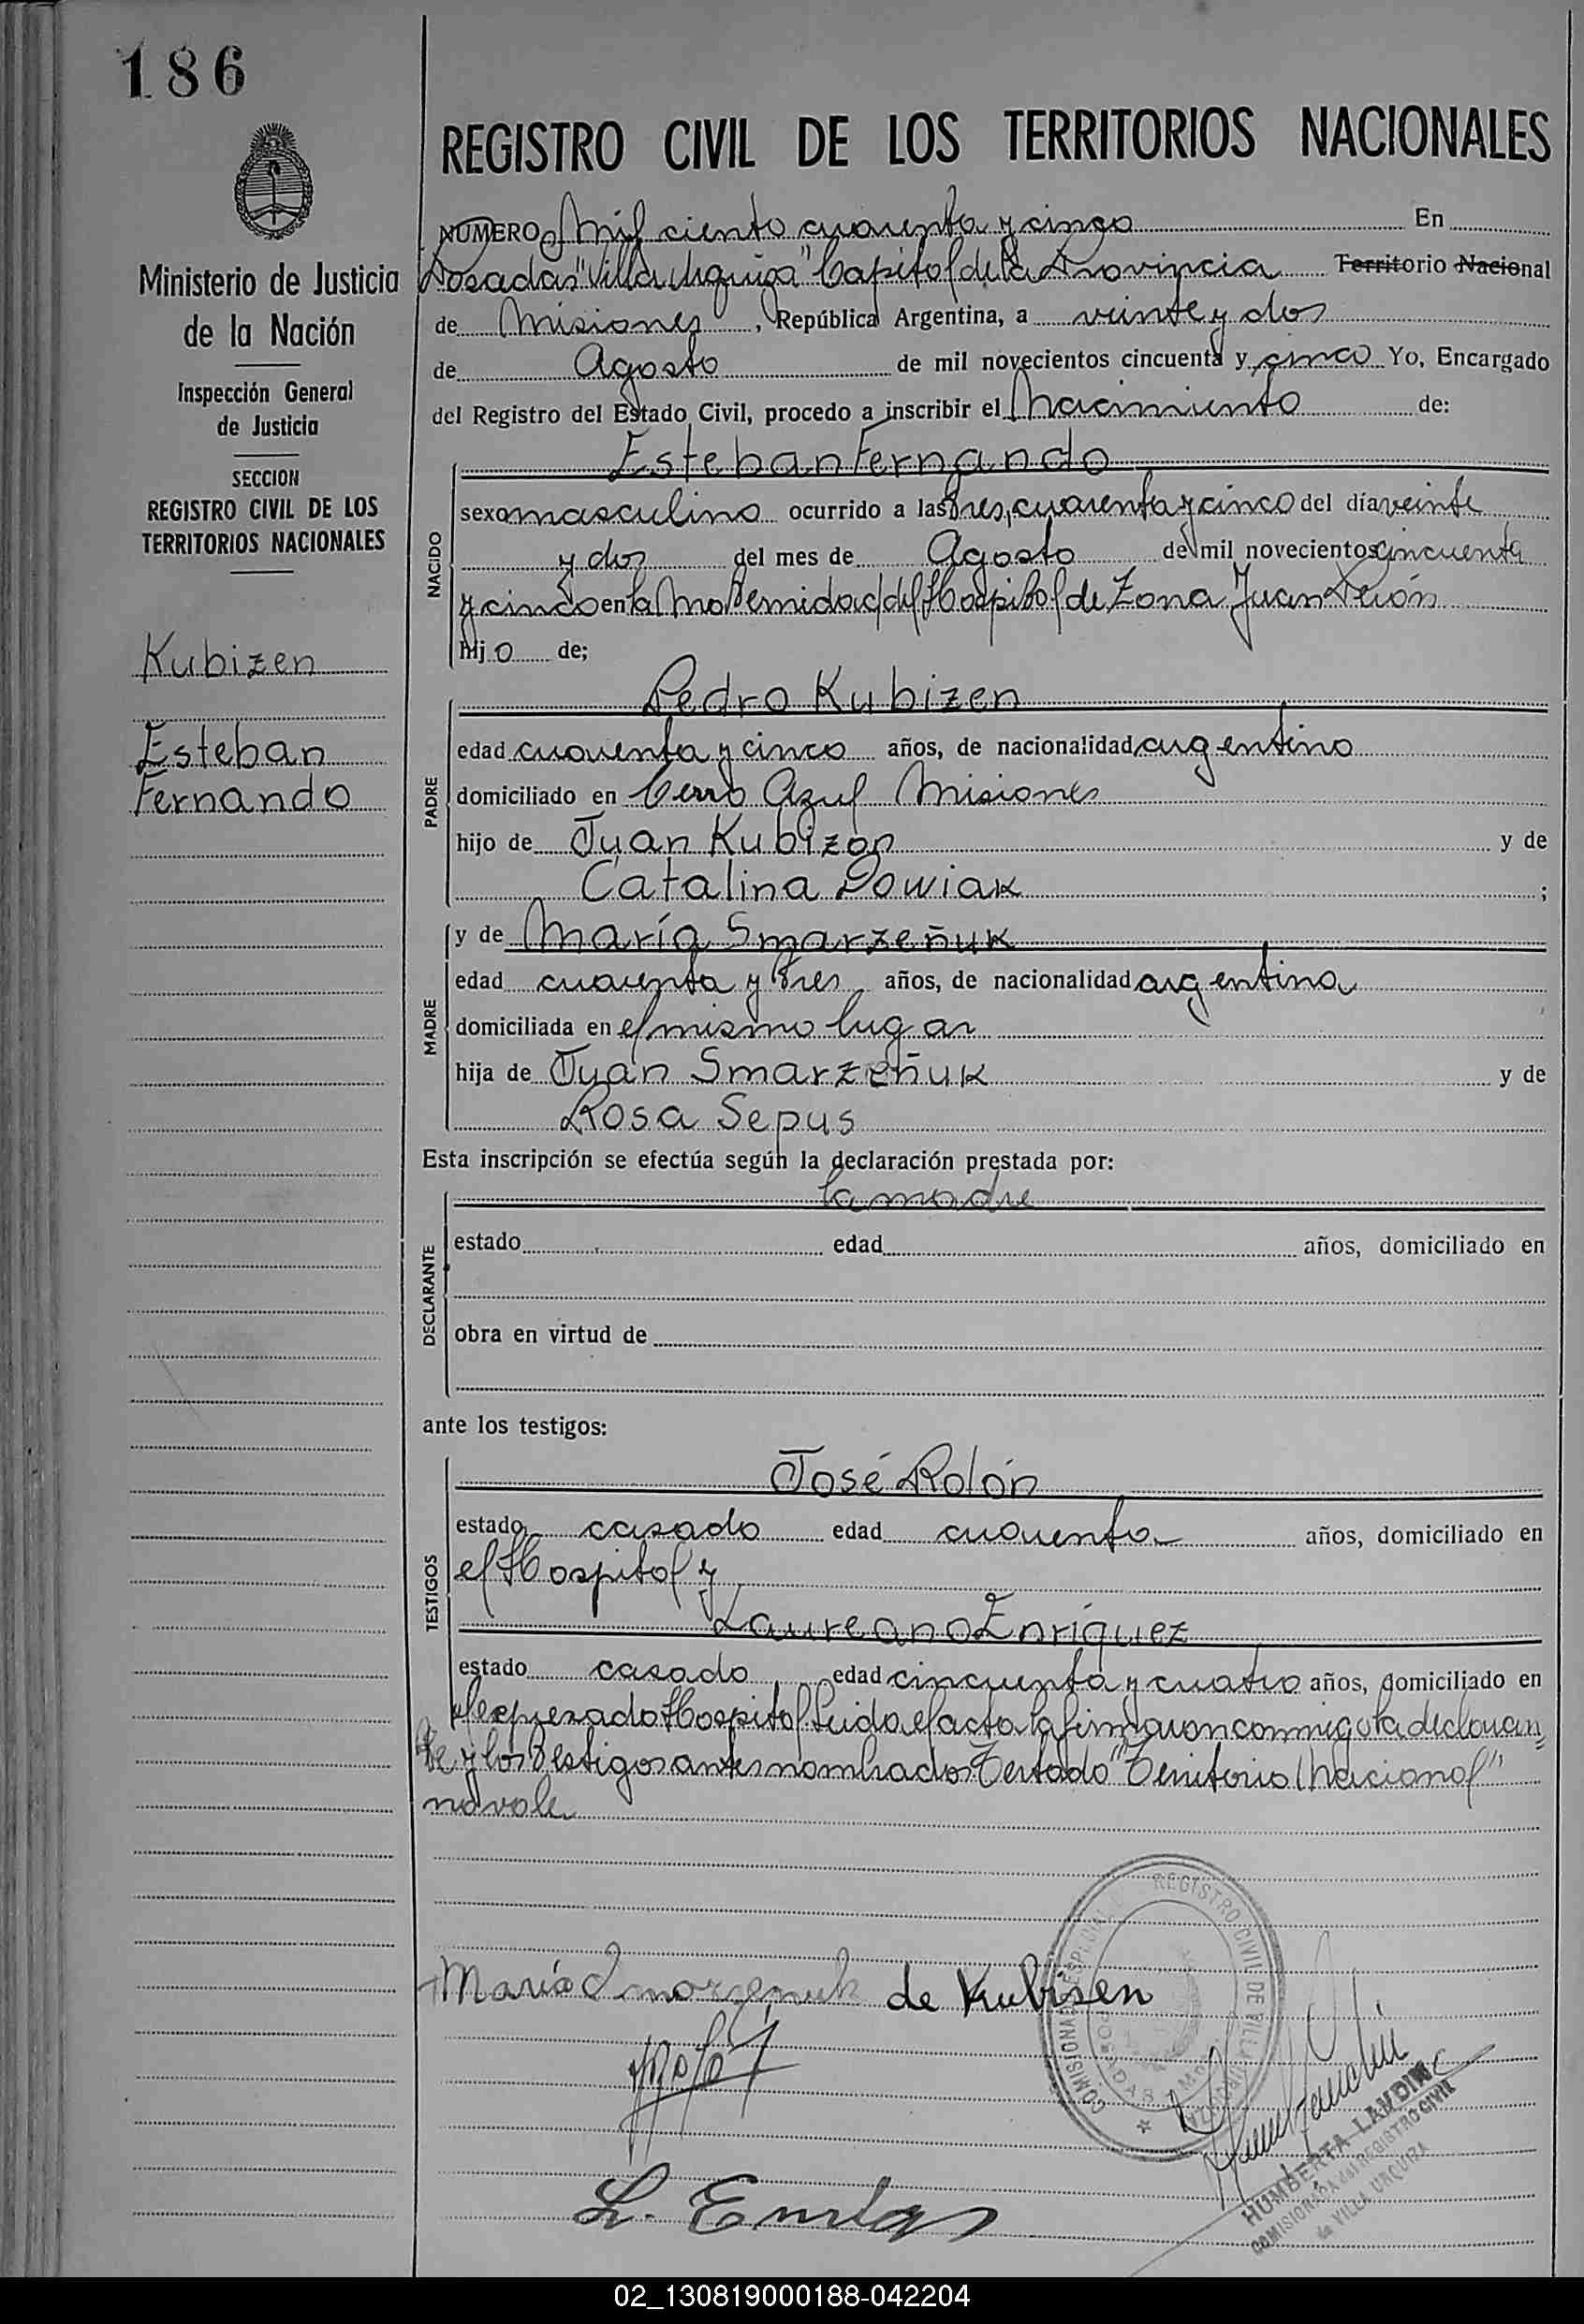 186
REGISTRO CIVIL DE LOS TERRITORIOS NACIONALES
Ministerio de Justicia
de la Nación
Inspección General
de Justicia
SECCION
REGISTRO CIVIL DE LOS
TERRITORIOS NACIONALES
Kubizen
Esteban
Fernando
NUMERO Mil ciento cuarenta y cinco En
Posadas "Villa Urquiza" Capital de la Provincia Territorio Nacional
de Misiones, República Argentina, a veinte y dos
de Agosto de mil novecientos cincuenta y cinco Yo, Encargado
del Registro del Estado Civil, procedo a inscribir el Nacimiento de:
NACIDO
Esteban Fernando
sexo masculino ocurrido a las tres, cuarenta y cinco del día veinte
y dos del mes de Agosto de mil novecientos cincuenta
y cinco en la Maternidad del Hospital de Zona Juan Perón
hijo de;
PADRE
Pedro Kubizen
edad cuarenta y cinco años, de nacionalidad argentino
domiciliado en Cerro Azul Misiones
hijo de Juan Kubizen y de
Catalina Powiak ;
MADRE
y de María Smarzeñuk
edad cuarenta y tres años, de nacionalidad argentina
domiciliada en el mismo lugar
hija de Juan Smarzeñuk y de
Rosa Sepus
Esta inscripción se efectúa según la declaración prestada por:
DECLARANTE
la madre
estado edad años, domiciliado en
obra en virtud de
ante los testigos:
TESTIGOS
José Rolón
estado casado edad cuarenta años, domiciliado en
el Hospital y
Laureano Enríquez
estado casado edad cincuenta y cuatro años, domiciliado en
el expresado Hospital. Leida el acta la firmaron conmigo la declaran=
te y los testigos antes nombrados. Testado "Territorio Nacional"
no vale
María Smarzenuk de Kubisen
COMISIONADA ESPECIAL REGISTRO CIVIL DE VILLA URQUIZA
POSADAS
HUMBERTA LANDINI
COMISIONADA del REGISTRO CIVIL
de VILLA URQUIZA
02_130819000188-042204